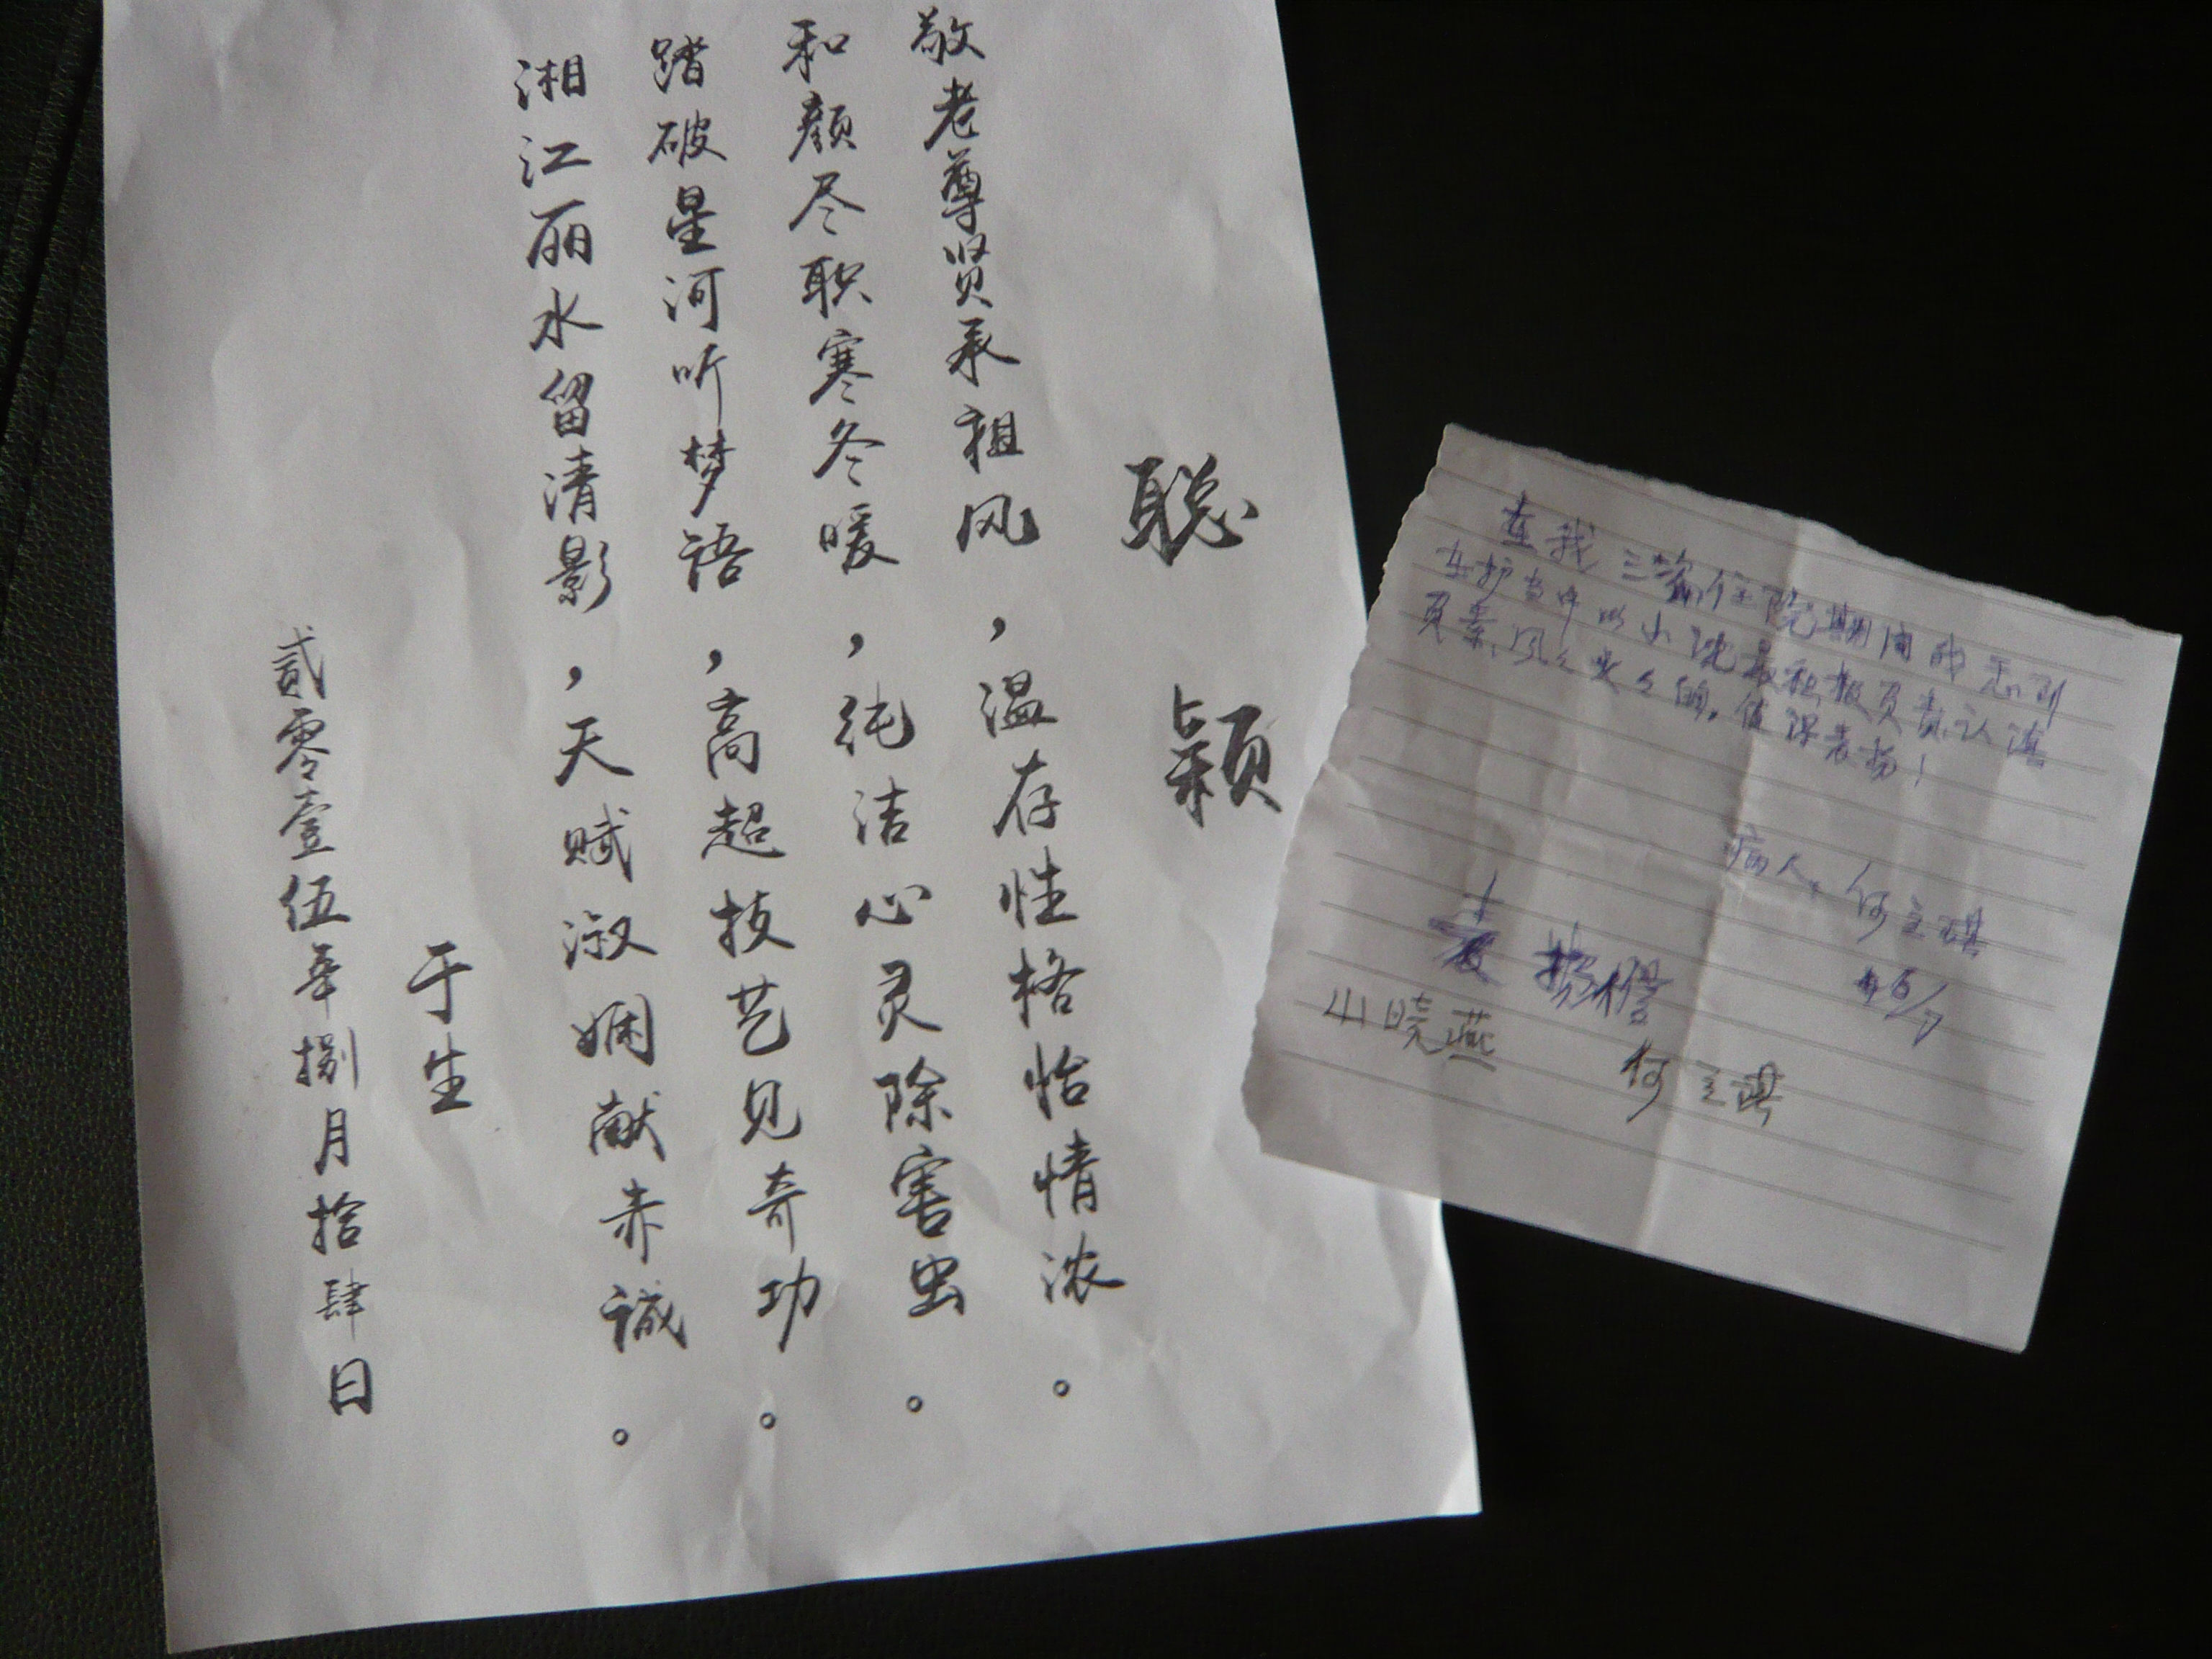 聪颖
敬老尊贤承祖风，温存性格怡情浓。
和颜尽职寒冬暖，纯洁心灵除害虫。
踏破星河听梦语，高超技艺见奇功。
湘江丽水留清影，天赋淑娴献赤诚。
于生
贰零壹伍年捌月拾肆日
在我三第住院期间的
当中以小沈最积极负责认真
的。值得表扬！
病人：何立琪
6/7
小晓燕
何立琪